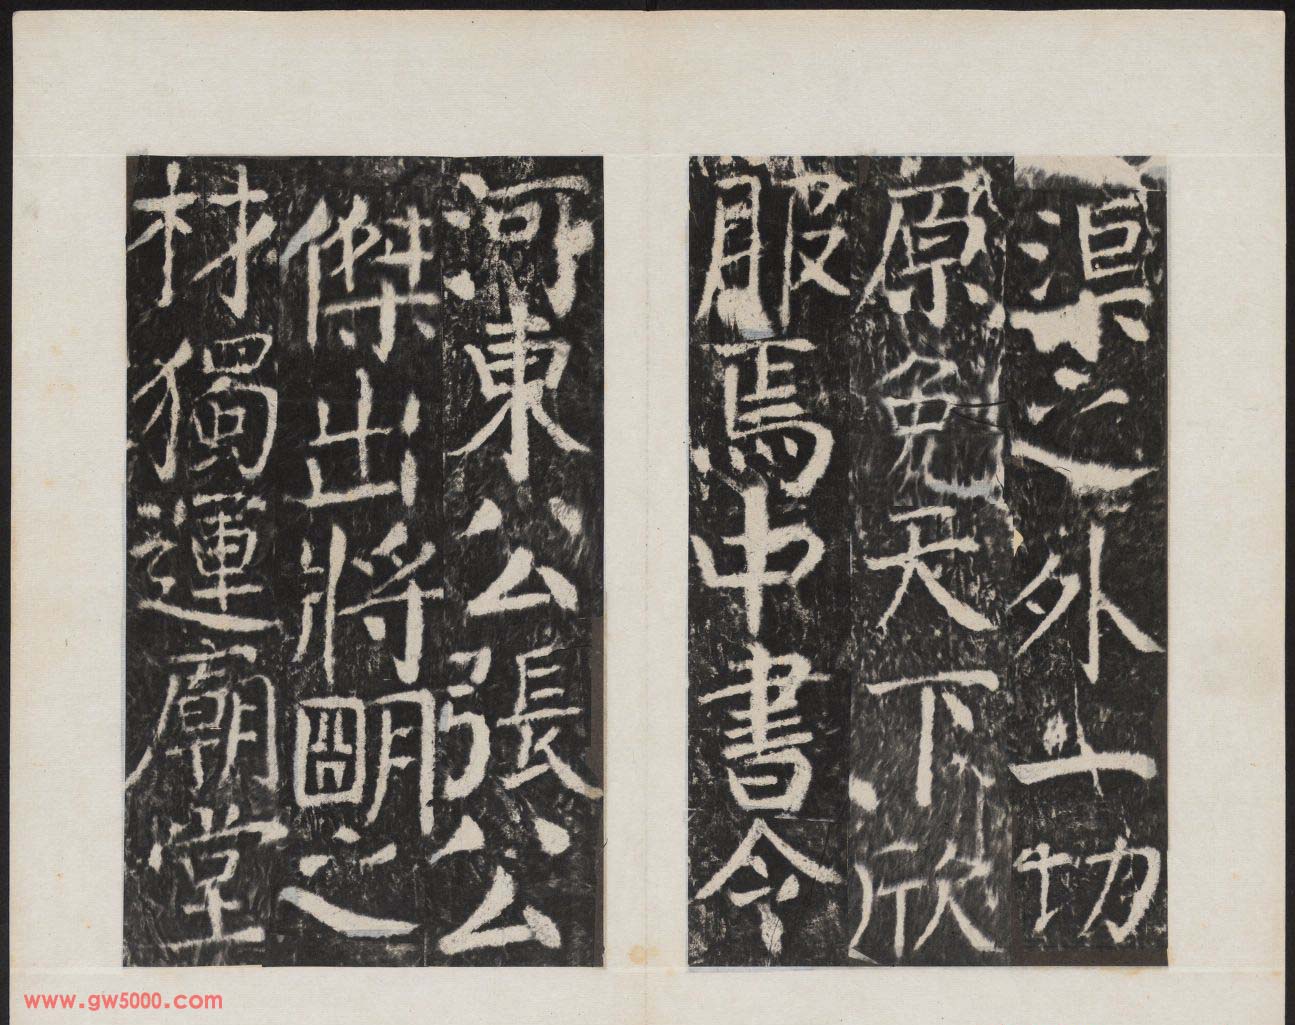 滇之外一切
原免天下欣
服焉中書令
河東公張公
傑出將明之
材獨運廟堂
www.gw5000.com